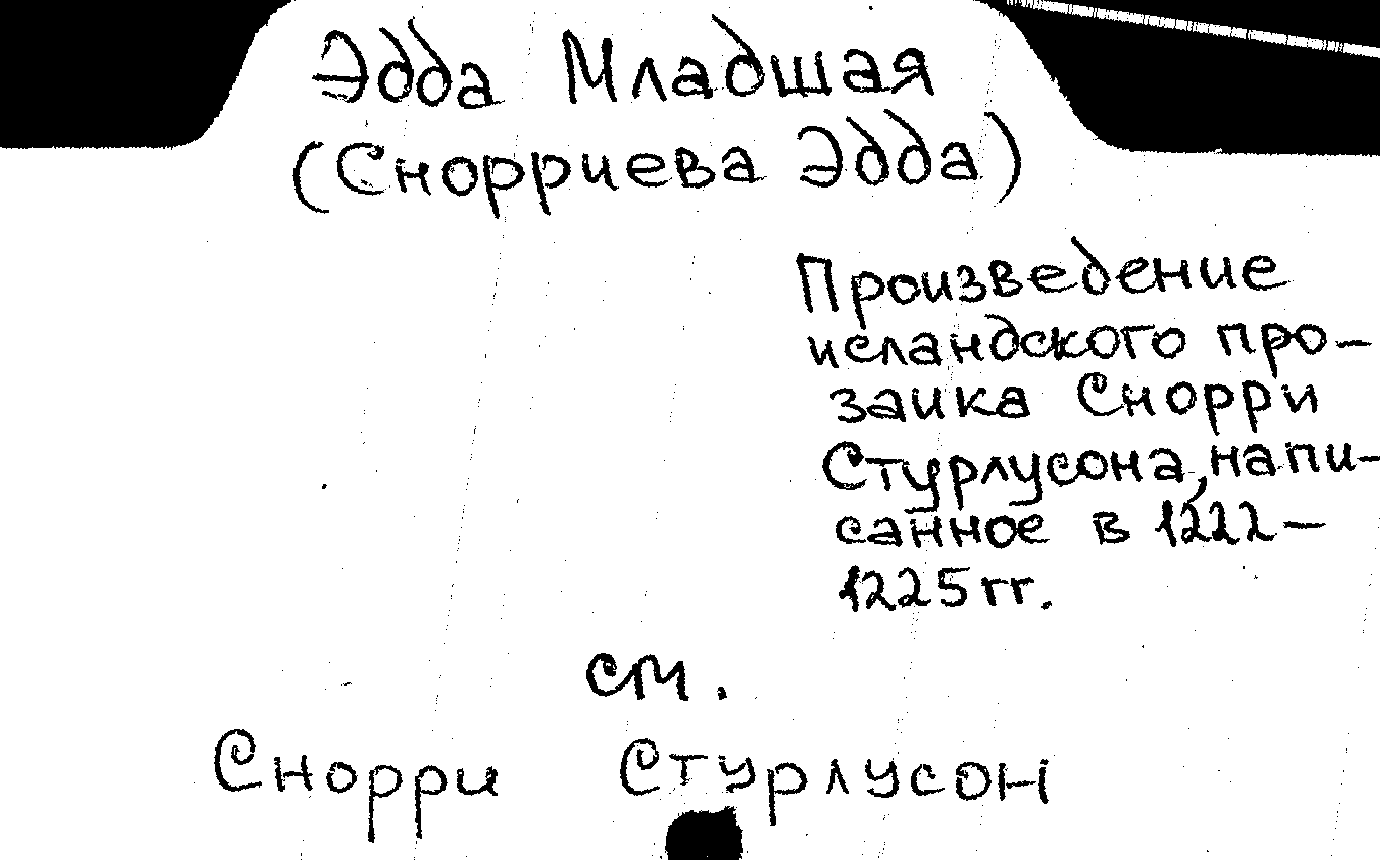 Эдда Младшая
(Снорриева Эдда)
Произведение
исландского про-
заика Снорри
Стурлусона, напи-
санное в 1222–
1225 гг.
см.
Снорри Стурлусон